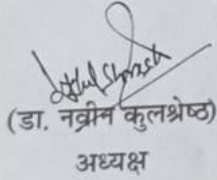 (डा. नवीन कुलश्रेष्ठ)
अध्यक्ष